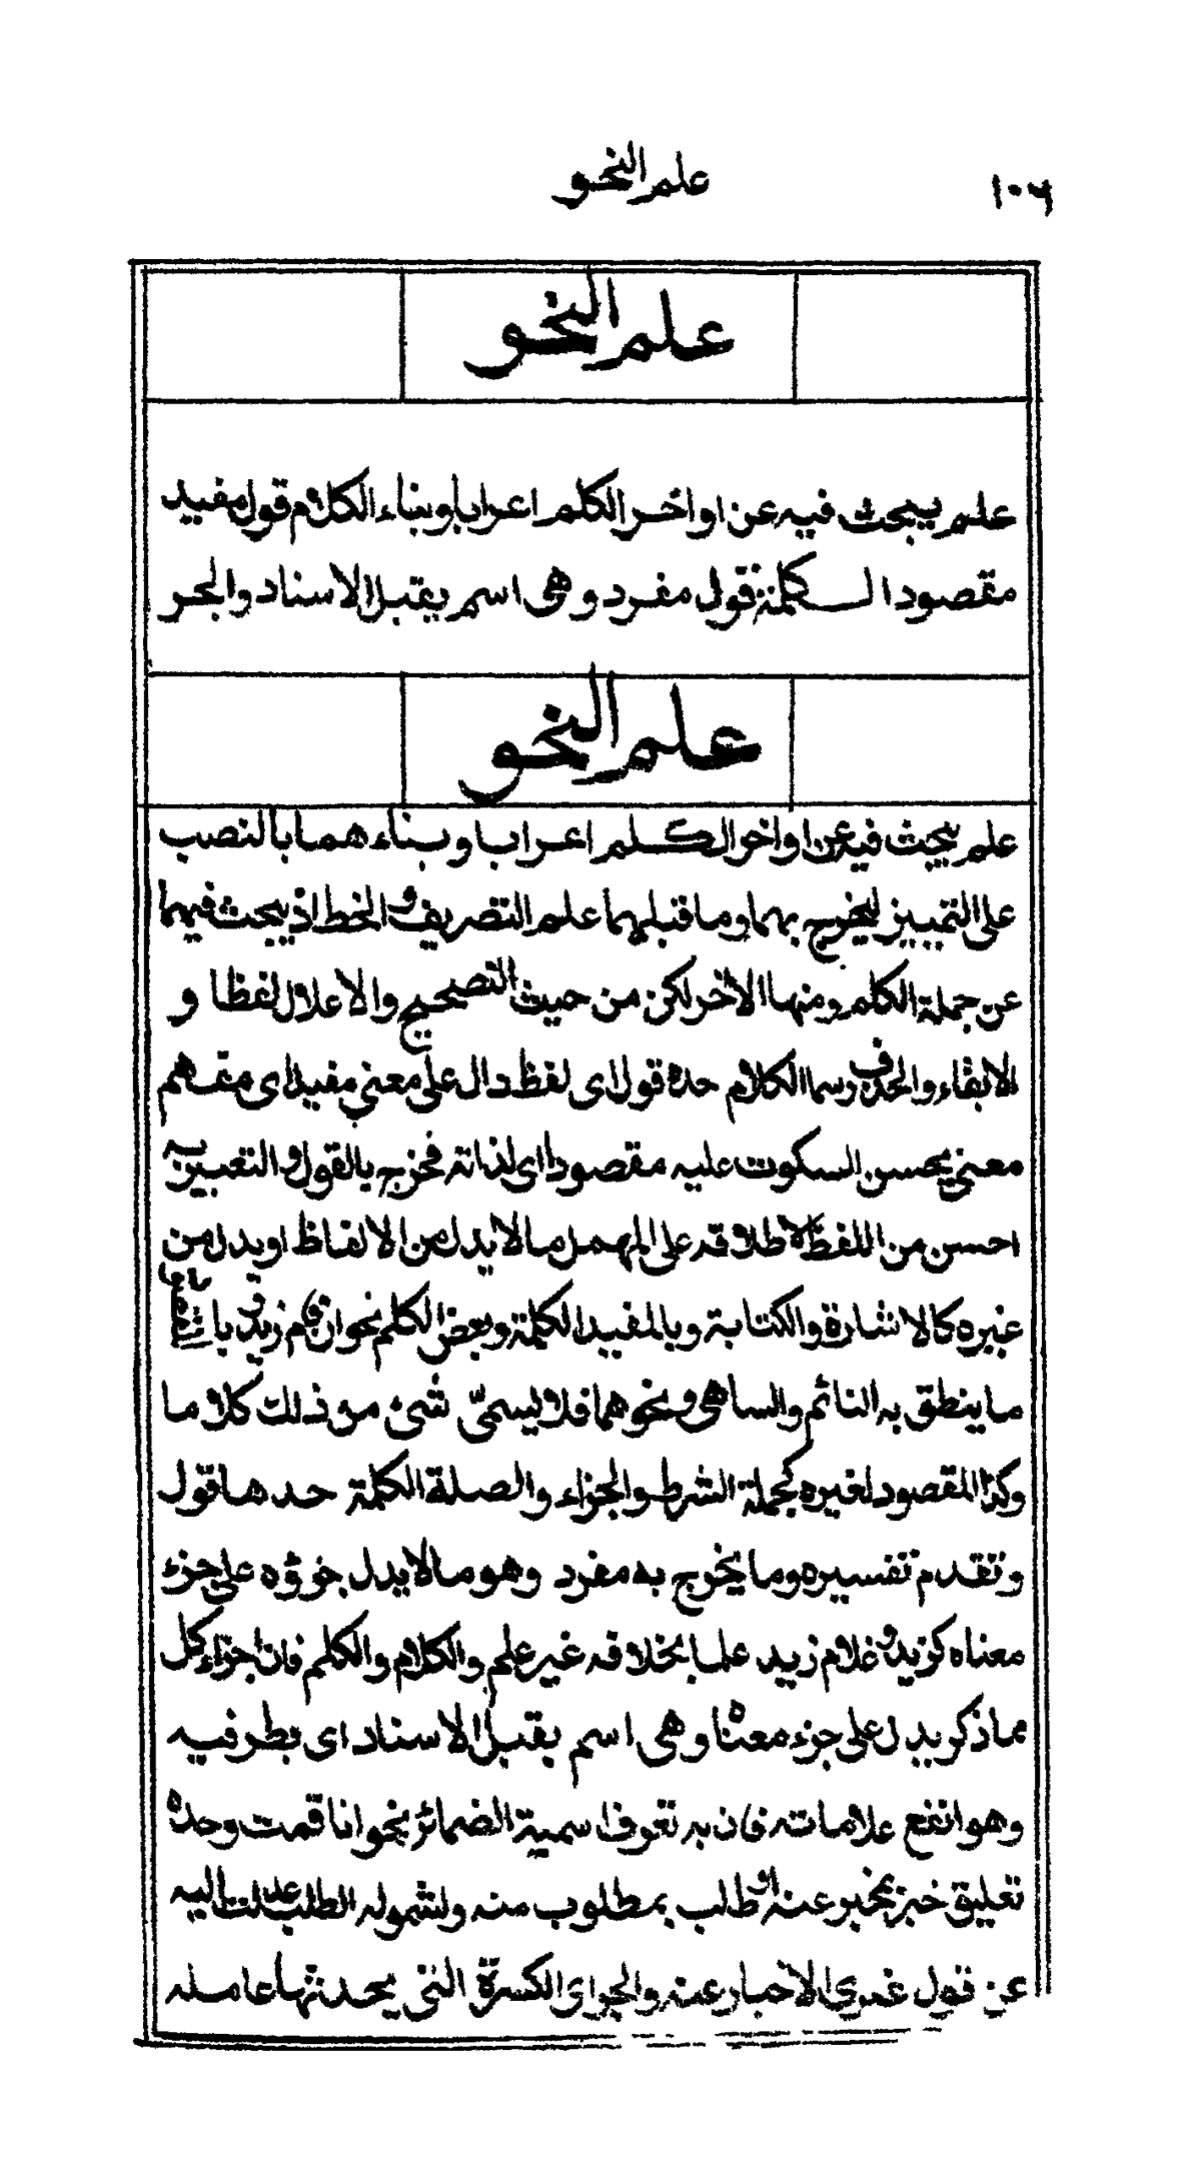 ١٠٦
علم النحو
علم النحو
علم يبحث فيه عن اواخر الكلم اعرابا وبناء الكلام قول مفيد
مقصود الكلمة قول مفرد وهى اسم يقبل الاسناد والجر
علم النحو
علم يبحث فيه عن اواخر الكلم اعرابا وبناء هما بالنصب
على التمييز ليخرج بهما وما قبلهما علم التصريف والخط اذ يبحث فيهما
عن جملة الكلم ومنها الآخر لكن من حيث التصحيح والاعلال لفظا و
الابقاء والحذف رسما الكلام حده قول اى لفظ دال على معنى مفيد اى مفهم
معنى يحسن السكوت عليه مقصود اى لذاته فخرج بالقول والتعبير به
احسن من اللفظ لاطلاقه على المهمل ما لا يدل من الالفاظ او يدل من
غيره كالاشارة والكتابة وبالمفيد الكلمة وبعض الكلم نحو ان قام زيد وبا
ما ينطق به النائم والساهى ونحوهما فلا يسمى شئ من ذلك كلاما
وكذا المقصود لغيره كجملة الشرط والجزاء والصلة الكلمة حدها قول
وتقدم تفسيره وما يخرج به مفرد وهو ما لا يدل جزؤه على جزء
معناه كزيد وغلام زيد علما بخلافه غير علم والكلام والكلم فان اجزاء كل
مما ذكر يدل على جزء معناه وهى اسم يقبل الاسناد اى بطرفيه
وهو انفع علاماته فان به تعرف اسمية الضمائر نحو انا قمت وحده
تعليق خبر بمخبر عنه او طلب بمطلوب منه ولشموله الطلب عدلت اليه
عن قول غيرى الاخبار عنه والجر اى الكسرة التى يحدثها عامله